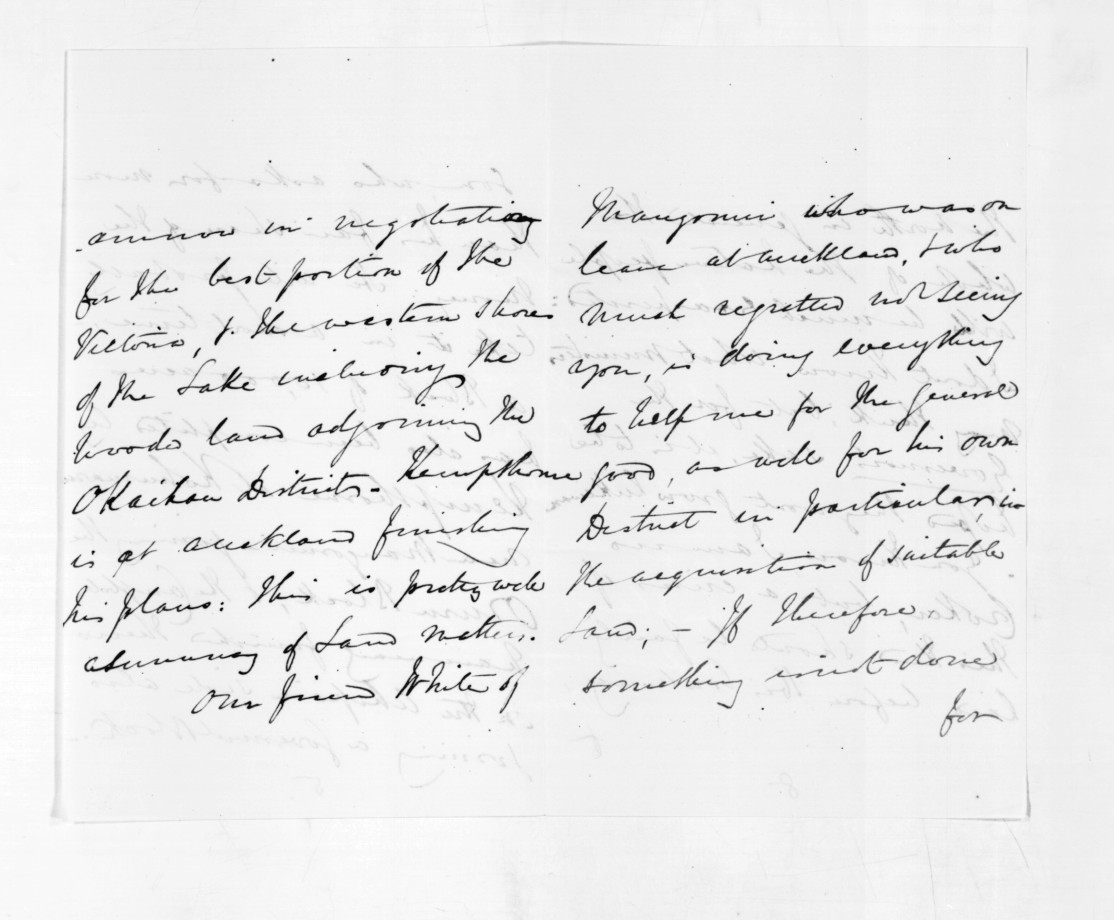 am now in negotiating
for the best portion of the
Victoria, & the western shores
of the Lake including the
wooded land adjoining the
Okaihau Districts - Kempthorne
is at Auckland finishing
his plans: This is pretty well
a summary of Land matters.
Our friend White of
Mangonui who was on
leave at Auckland, & who
much regretted not seeing
you, is doing everything
to help me for the general
good, as well for his own
District in particular, in
the acquisition of suitable
Land; - If therefore
something is not done
for